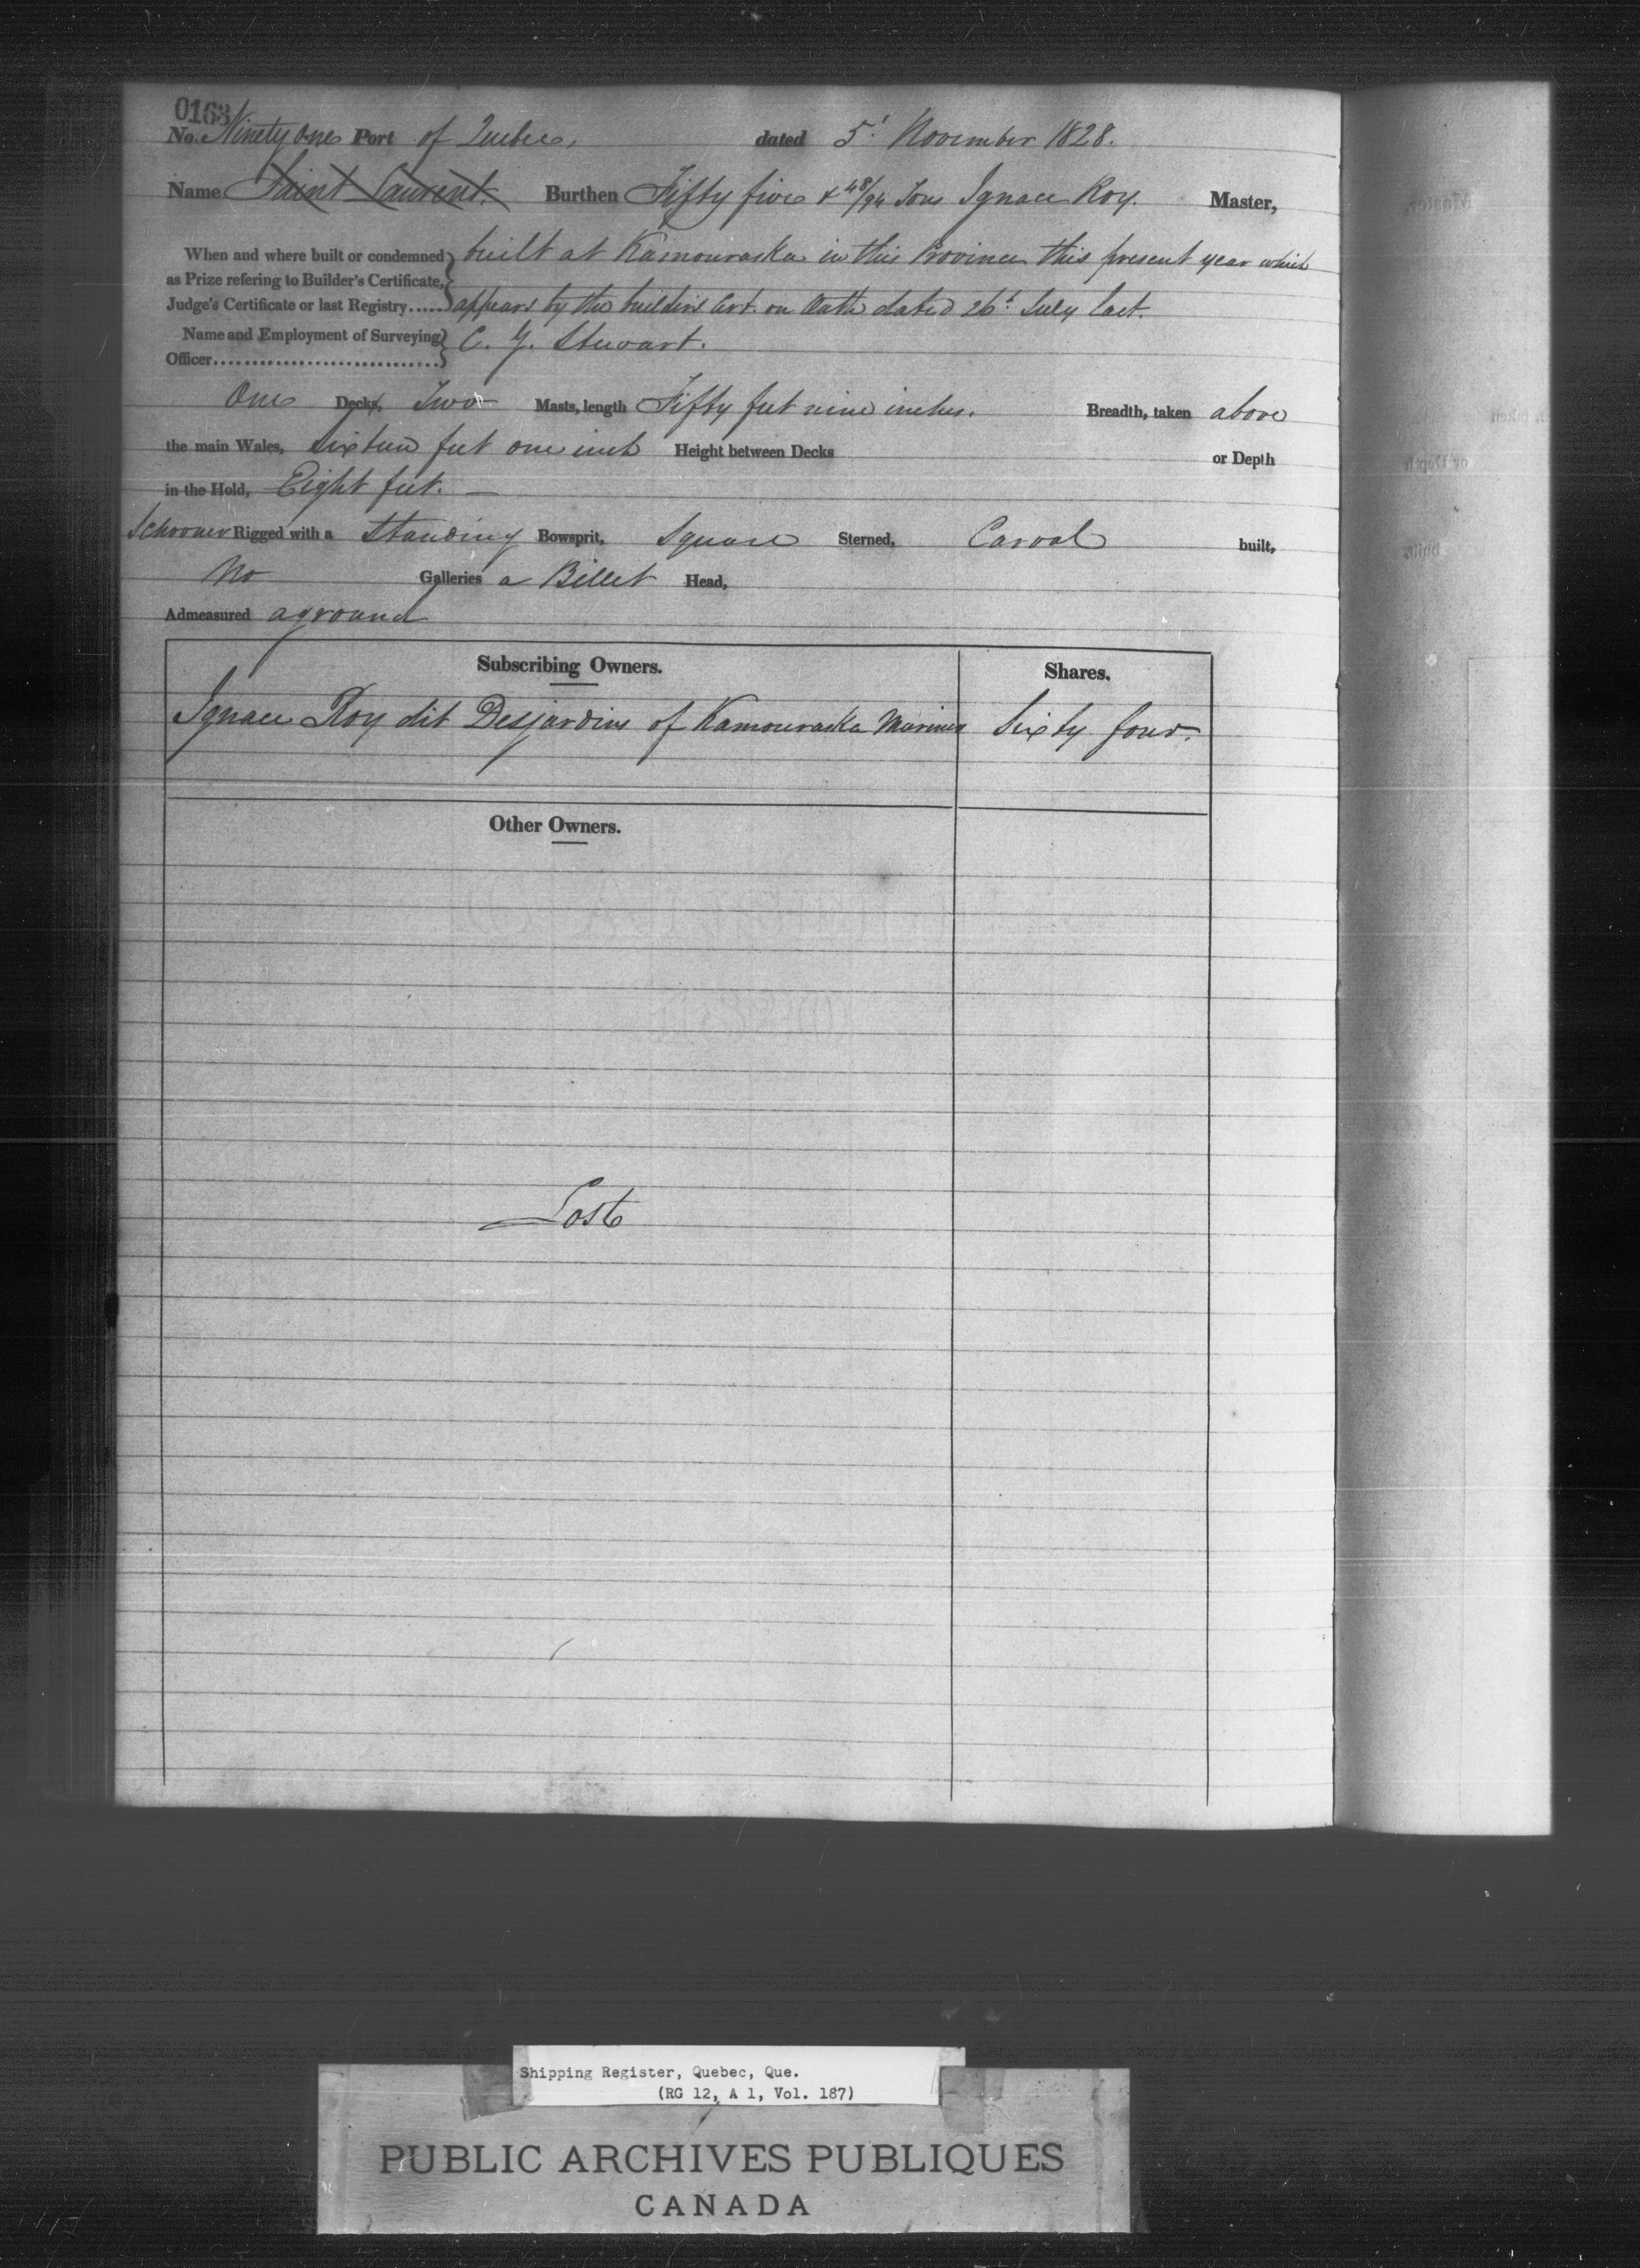 0163
No. Ninety one Port of Quebec, dated 5t November 1828.
Name Saint Laurent. Burthen Fifty five & 48/94 Tons Ignace Roy. Master,
When and where built or condemned as Prize refering to Builder's Certificate, Judge's Certificate or last Registry...... built at Kamouraska in this Province this present year which
appears by the builders Cert. on Oath dated 26t July last.
Name and Employment of Surveying Officer.............................. C. G. Stewart.
One Decks, Two Masts, length Fifty feet nine inches. Breadth, taken above
the main Wales, sixteen feet one inch Height between Decks or Depth
in the Hold, Eight feet. —
Schooner Rigged with a Standing Bowsprit, Square Sterned, Carval built,
No Galleries a Billet Head,
Admeasured aground
Subscribing Owners. Shares.
Ignace Roy dit Desjardins of Kamouraska Mariner Sixty four.
Other Owners.
Lost
Shipping Register, Quebec, Que.
(RG 12, A 1, Vol. 187)
PUBLIC ARCHIVES PUBLIQUES
CANADA